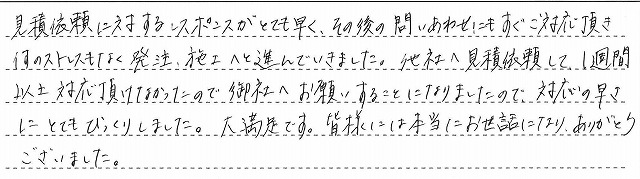 見積依頼に対するレスポンスがとても早く、その後の問いあわせにもすぐご対応頂き
何のストレスもなく発注、施工へと進んでいきました。他社へ見積依頼して、1週間
以上対応頂けなかったので御社へお願いすることになりましたので、対応の早さ
にとてもびっくりしました。大満足です。皆様には本当にお世話になりありがとう
ございました。